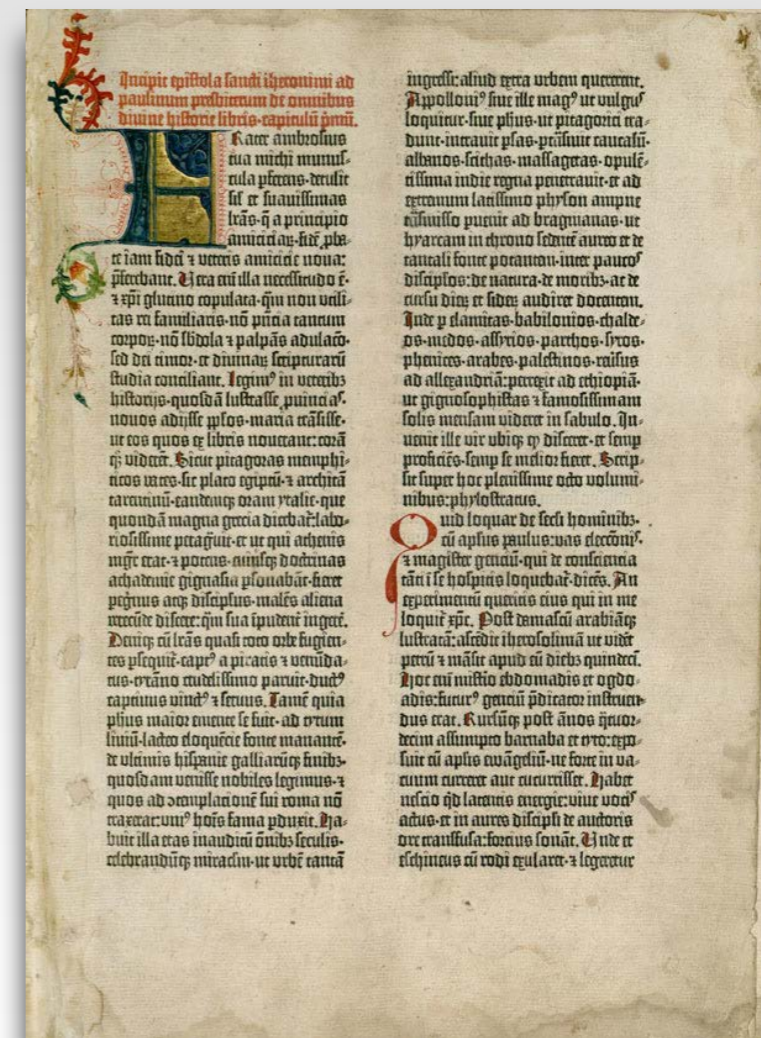 Incipit epistola sancti iheronimi ad
paulinum presbiterum de omnibus
divine historie libris·capitulū p̄mū.
Frater ambrosius
tua michi munus-
cula pferens·detulit
sil' et suavissimas
lrās·q̄ a principio
amiciciaꝝ·fidē ꝓba-
te iam fidei ⁊ veteris amicicie nova:
pferebant. Vera em̄ illa necessitudo ē·
⁊ xp̄i glutino copulata·qm̄ non utili-
tas rei familiaris·nō pn̄cia tantum
corpoꝝ·nō sbdola ⁊ palpās adulac̄o·
sed dei timor·et divinaꝝ scripturarū
studia conciliant. Legim⁹ in veteribꝫ
historijs·quosdā lustrasse ꝓvincias·
novos adijsse pplos·maria trāsisse·
ut eos quos ex libris noverant: corā
qꝫ viderēt. Sicut pitagoras memphi-
ticos vates·sic plato egiptū·⁊ architā
tarentinū·eandemqꝫ oram ytalie·que
quondā magna grecia dicebat̄: labo-
riosissime peragvit·et ut qui athenis
mgr̄ erat·⁊ potens·cuiusqꝫ doctrinas
achademie gignasia psonabāt·fieret
pegrinus atqꝫ discipulus·malēs aliena
verecūde discere: qm̄ sua īpudent̄ ingerē.
Deniqꝫ cū lrās quasi toto orbe fugien-
tes psequit̄·capt⁹ a piratis ⁊ venūda-
tus·tyrāno crudelissimo paruit·duct⁹
captivus vinct⁹ ⁊ servus. Tamē quia
phūs maior emente se fuit·ad tytum
liviū·lacteo eloquēcie fonte manantē·
de ultimis hispanie galliarūqꝫ finibꝫ·
quosdam venisse nobiles legimus·⁊
quos ad ꝯtemplationē sui roma nō
traxerat: uni⁹ hoīs fama pduxit. Ha-
buit illa etas inauditū ōnibꝫ seculis·
celebrandūqꝫ miraclm·ut urbē tantā
ingressi: aliud extra urbem quererent.
Appolloni⁹ sive ille mag⁹ ut vulgus
loquitur·sive phūs·ut pitagorici tra-
dunt·intravit psas·ptrāsivit caucasū·
albanos·scithas·massagetas·opulē-
tissima indie regna penetravit·et ad
extremum latissimo physon ampne
trāsmisso puenit ad bragmanas·ut
hyarcam in throno sedentē aureo et de
tantali fonte potantem·inter paucos
discipulos: de natura·de moribꝫ·ac de
cursu dieꝝ et sideꝝ audiret docentem.
Inde p elamitas·babilonios·chalde-
os·medos·assyrios·parthos·syros·
phenices·arabes·palestinos·reūsus
ad allexandriā: perrexit ad ethiopiā·
ut gignosophistas ⁊ famosissimam
solis mensam videret in sabulo. In-
venit ille vir ubiqꝫ qḋ disceret·et semp
proficiēs·semp se melior fieret. Scrip-
sit super hoc plenissime octo volumi-
nibus: phylostratus.
Quid loquar de secli hominibꝫ.
cū aplus paulus: vas elecc̄onis·
⁊ magister genciū·qui de consciencia
tāti ī se hospitis loquebat̄·dicēs. An
experimentū queritis eius qui in me
loquit̄ xp̄c. Post damascū arabiāqꝫ
lustratā: ascēdit iherosolimā ut vidēt
petrū ⁊ māsit apud eū diebꝫ quindecī.
Hoc em̄ misterio ebdomadis et ogdo-
adis: futur⁹ genciū p̄dicator instruen-
dus erat. Rursūqꝫ post ānos q̄tuor-
decim assumpto barnaba et tyto: expo-
suit cū aplis ewāgeliū·ne forte in va-
cuum curreret aut cucurrisset. Habet
nescio qḋ latentis energie: vive vocis
actus·et in aures discipuli de auctoris
ore transfusa: forcius sonāt. Unde et
eschineus cū rodi exularet·⁊ legeretur